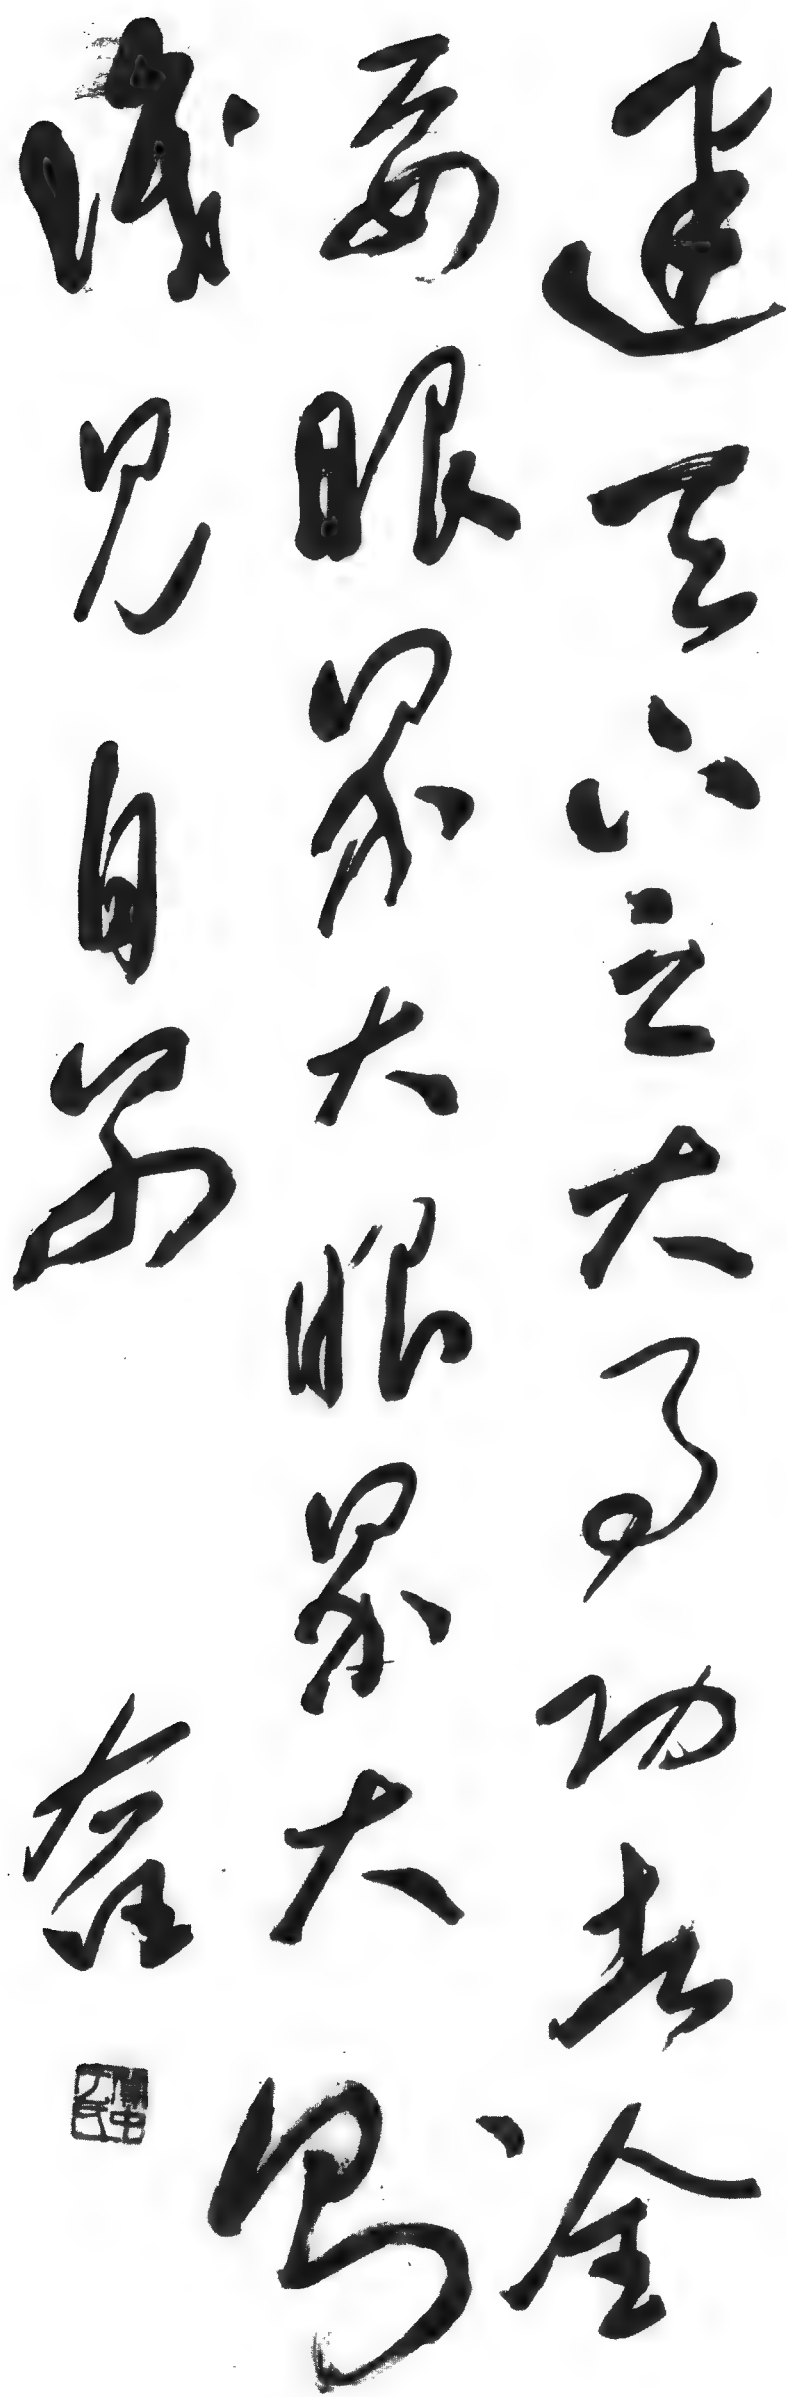 建天下之大事功者全
要眼界大眼界大則
識見自別